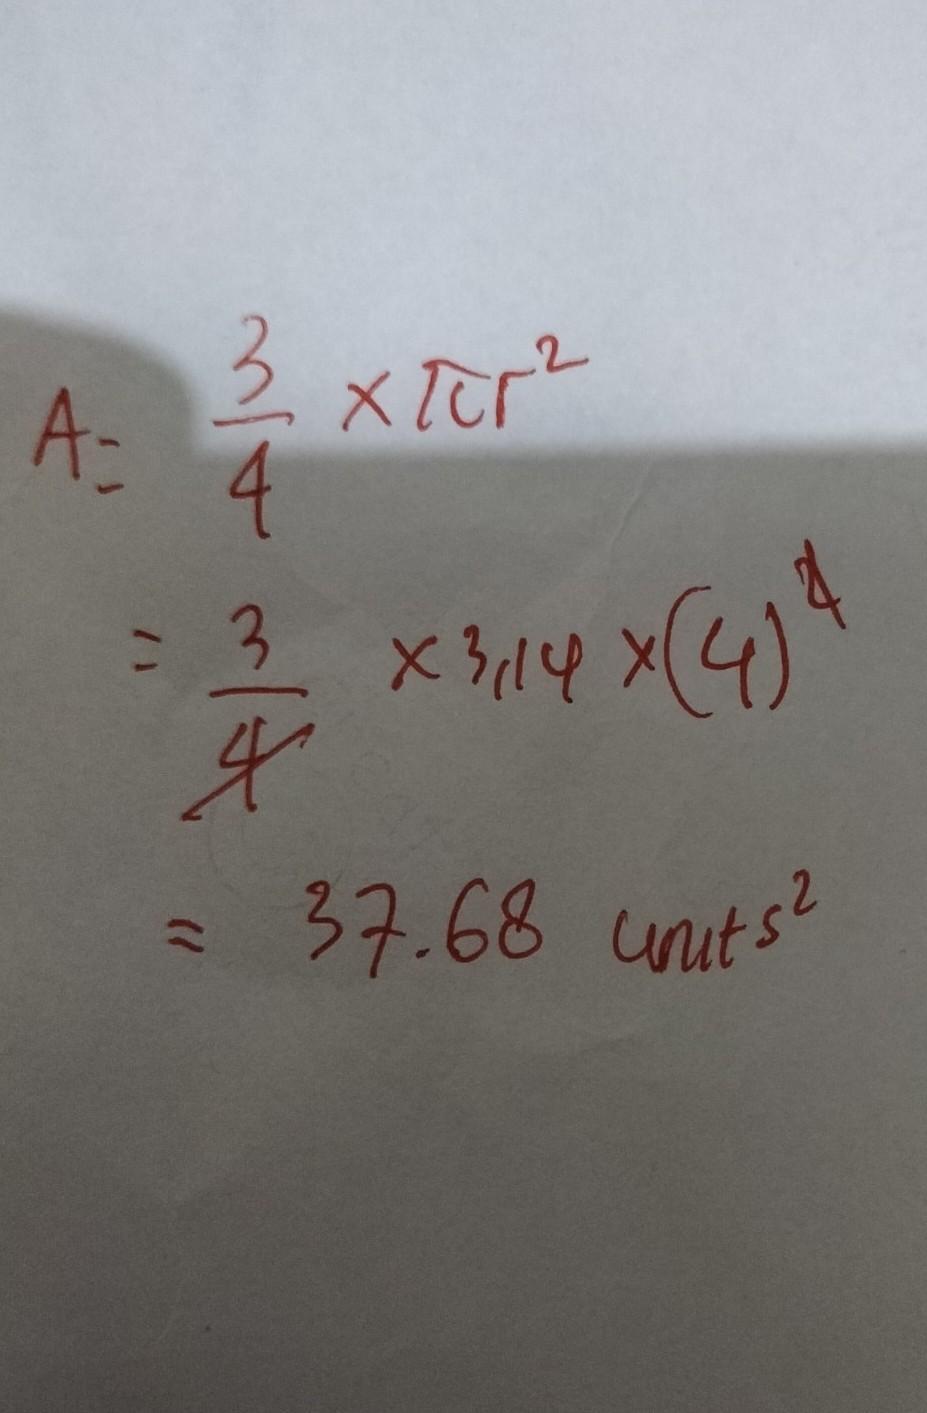 A = 3/4 × πr²
= 3/4 × 3,14 × (4)²
= 37.68 units²